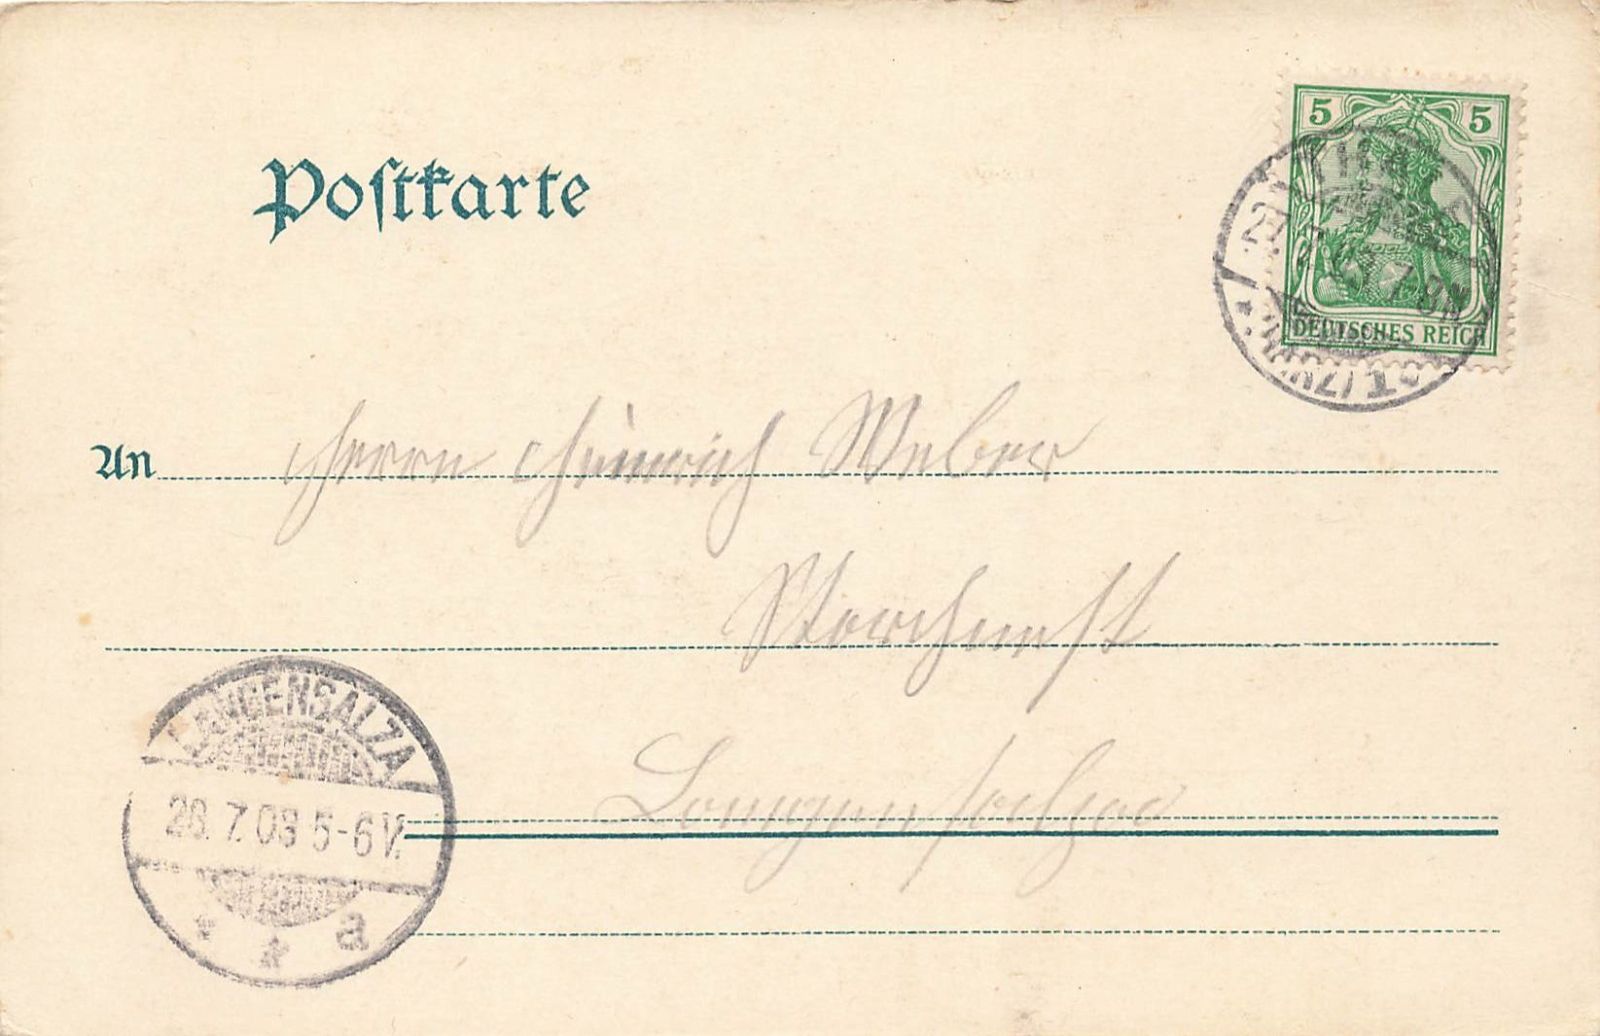 Postkarte
5 5
DEUTSCHES REICH
7-8N
An Herrn Heinrich Weber
Storchnest
Langensalza
LANGENSALZA
28.7.03 5-6V.
* * a